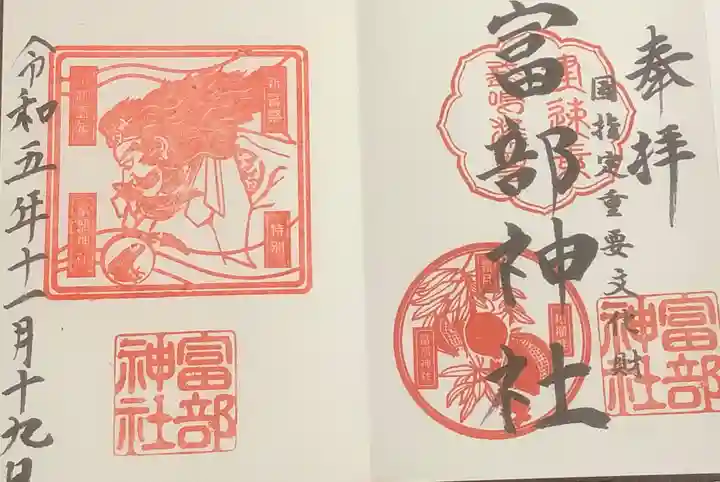 奉拝
国指定重要文化財
富部神社
富部神社
富部神社
令和五年十一月十九日
新嘗祭
特別
富部神社
富部神社